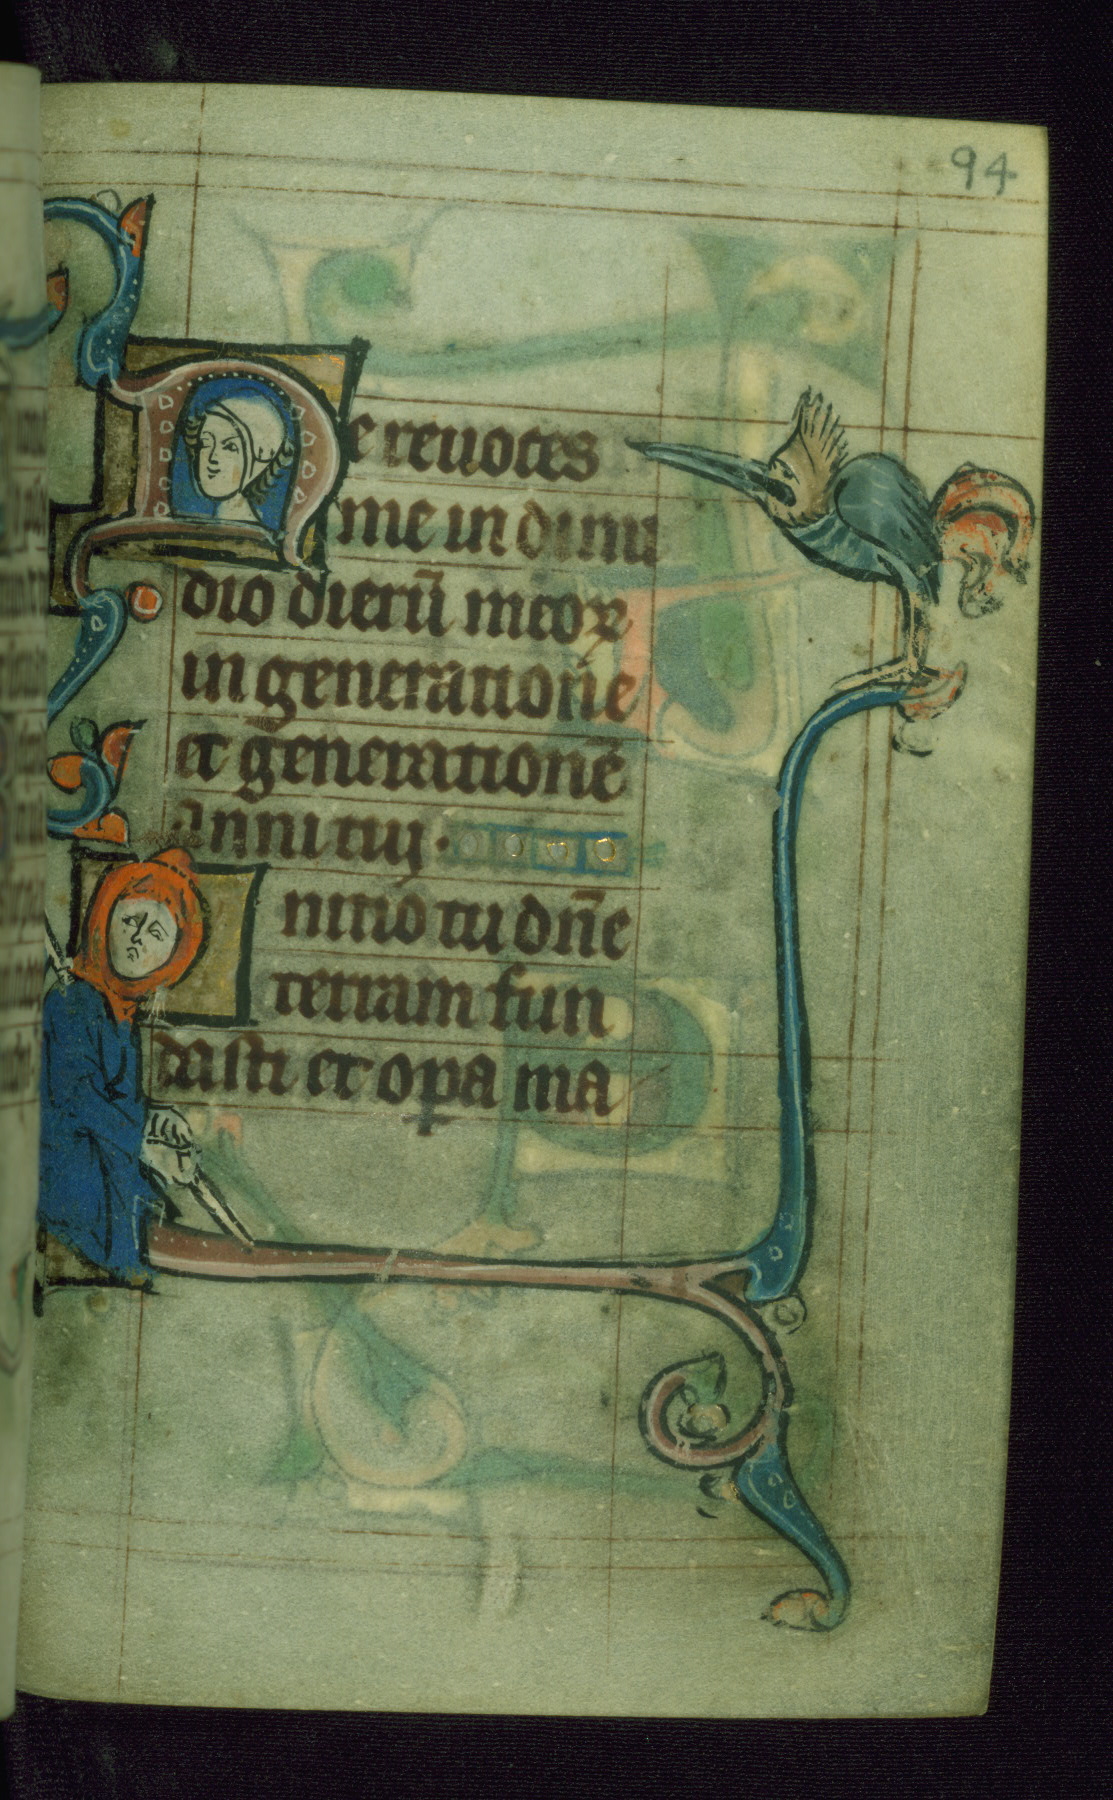 94
Ne reuoces
me in dimi
dio dierū meoꝝ
in generatione
et generationē
anni tui·
Initio tu dn̄e
terram fun
dasti et oꝑa ma